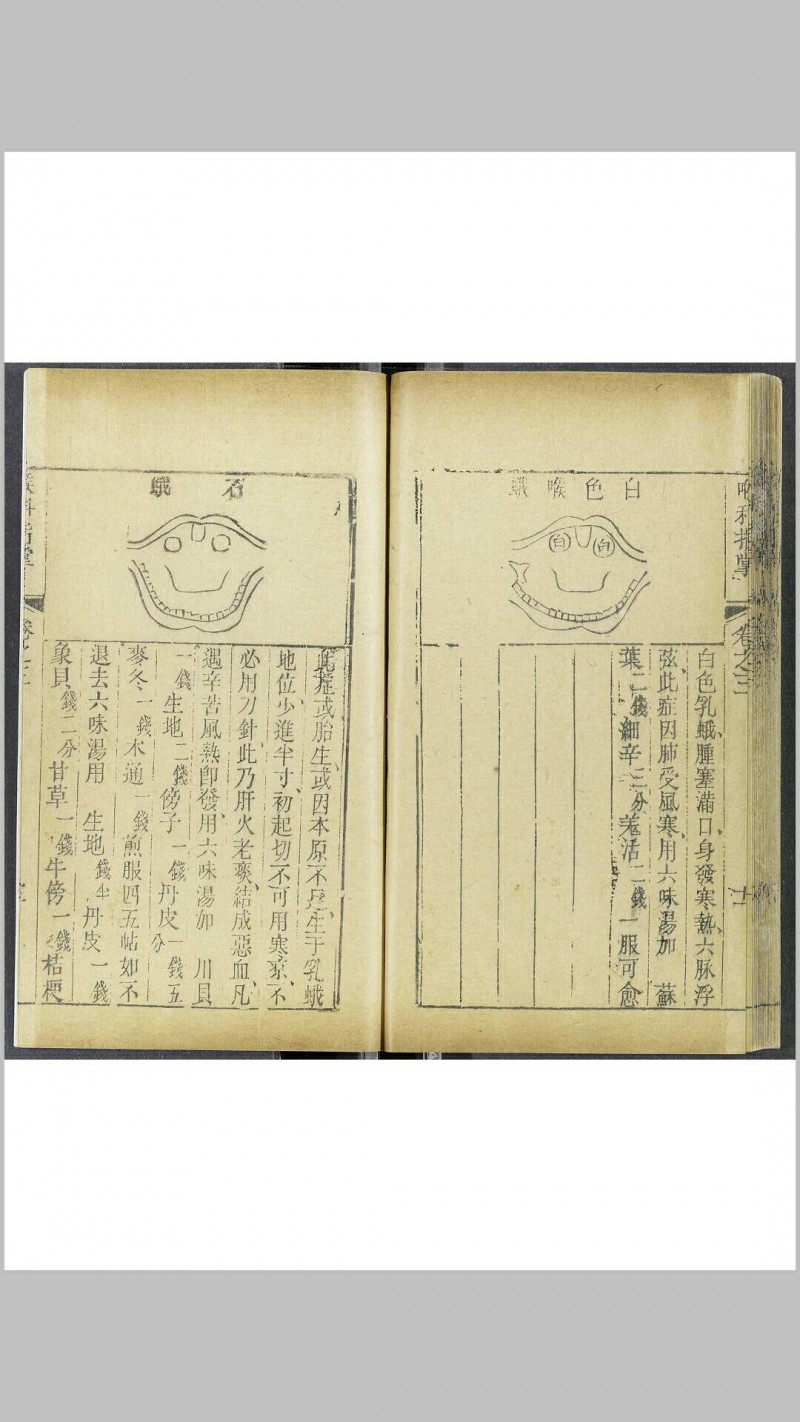 喉科指掌
卷之三
白色喉蛾
白
白
白色乳蛾、腫塞滿口、身發寒熱、六脉浮
弦、此症因肺受風寒、用六味湯加 蘇
葉二錢細辛三分羗活二錢一服可愈
石蛾
此症或胎生、或因本原不足、生于乳蛾
地位、少進半寸、初起切不可用寒凉、不
必用刀針、此乃肝火老痰、結成惡血、凡
遇辛苦風熱卽發、用六味湯加 川貝
一錢生地二錢傍子一錢丹皮一錢五
分
麥冬一錢木通一錢煎服四五帖如不
退去六味湯用 生地錢半丹皮一錢
象貝錢二分甘草一錢牛傍一錢桔梗
喉科指掌
卷之三